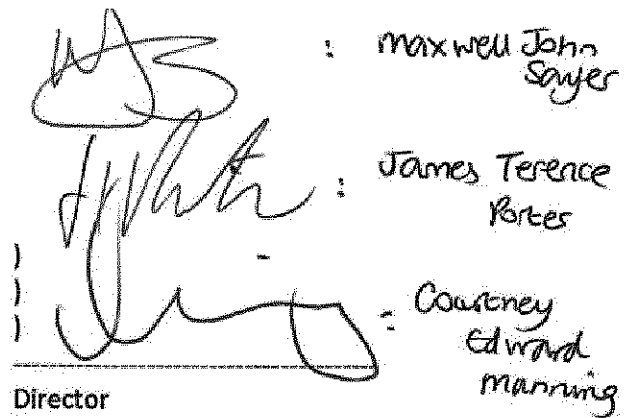 : maxwell John
Sayer
: James Terence
Porter
)
)
)
: Courtney
Edward
manning
Director